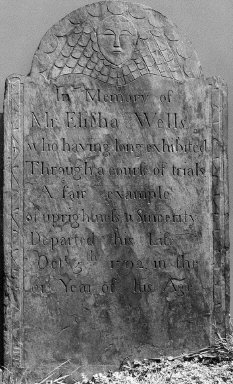 In Memory of
Mr. Elisha Wells
who having long exhibited
Through a course of trials
A fair example
of uprightness, & sincerity
Departed this Life
Octr. 5th 1792, in the
Year of his Age